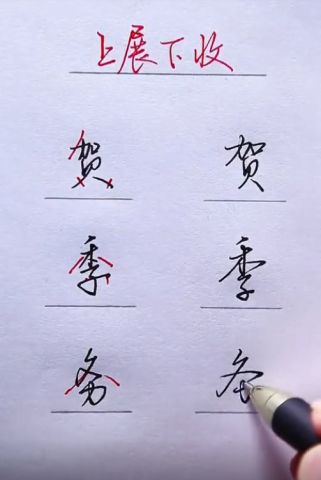 上展下收
贺 贺
季 季
务 务